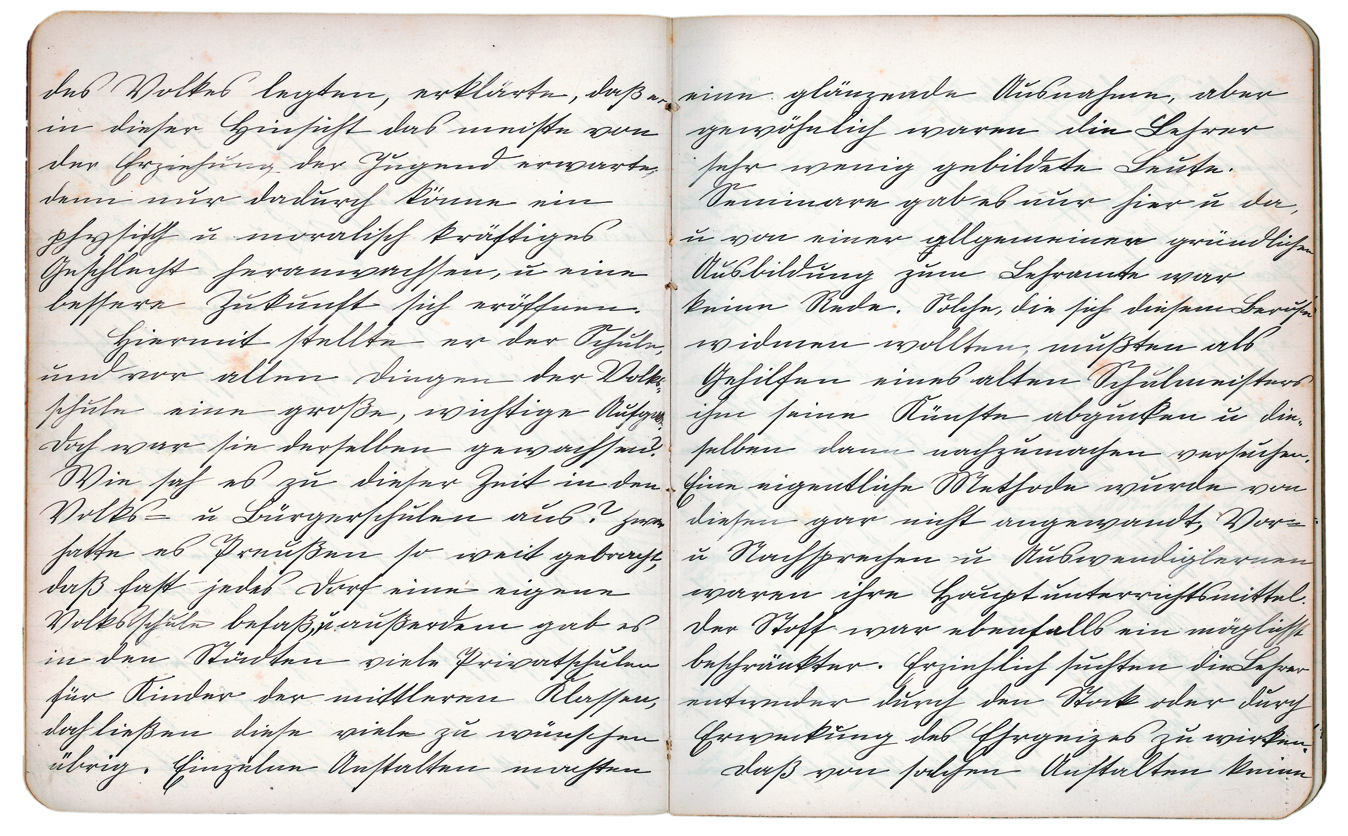 des Volkes legten, erklärte, daß er
in dieser Hinsicht das meiste von
der Erziehung der Jugend erwarte,
denn nur dadurch könne ein
physisch u moralisch kräftiges
Geschlecht heranwachsen, u eine
bessere Zukunft sich eröffnen.
Hiermit stellte er der Schule,
und vor allen Dingen der Volks-
schule eine große, wichtige Aufgabe.
Doch war sie derselben gewachsen?
Wie sah es zu dieser Zeit in den
Volks= u Bürgerschulen aus? Zwar
hatte es Preußen so weit gebracht,
daß fast jedes Dorf eine eigene
Volksschule befaß, u außerdem gab es
in den Städten viele Privatschulen
für Kinder der mittleren Klassen,
doch ließen diese viele zu wünschen
übrig. Einzelne Anstalten machten
eine glänzende Ausnahme, aber
gewöhnlich waren die Lehrer
sehr wenig gebildete Leute.
Seminare gab es nur hier u da,
u von einer allgemeinen gründlichen
Ausbildung zum Lehramte war
keine Rede. Solche, die sich diesem Berufe
widmen wollten, mußten als
Gehilfen eines alten Schulmeisters
ihm seine Künste abgucken u die-
selben dann nachzumachen versuchen.
Eine eigentliche Methode wurde von
diesen gar nicht angewandt, Vor=
u Nachsprechen u Auswendiglernen
waren ihre Hauptunterrichtsmittel.
Der Stoff war ebenfalls ein möglichst
beschränkter. Erziehlich suchten die Lehrer
entweder durch den Stock oder durch
Erweckung des Ehrgeizes zu wirken.
Daß von solchen Anstalten keine